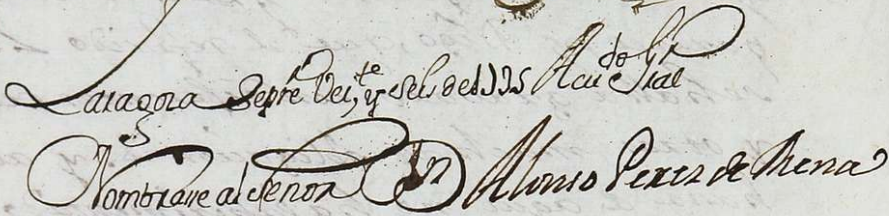 Zaragoza Septre Veinte y seis de 1725 Acdo Gral
Nombrase al Señor Dn Alonso Perez de Mena